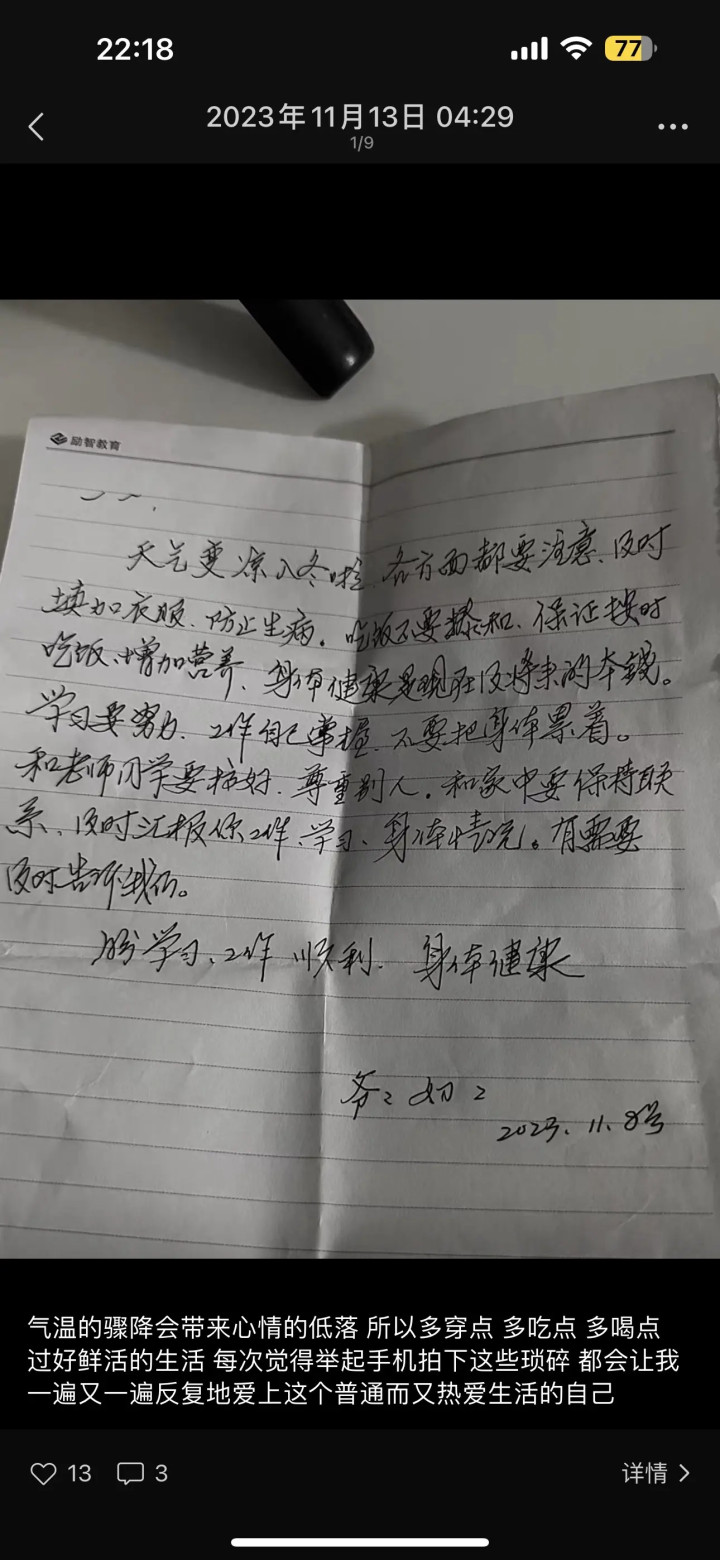 22:18
77
2023年11月13日 04:29
1/9
励智教育
天气变凉入冬啦、各方面都要注意、及时
填加衣服、防止生病。吃饭不要凑和、保证按时
吃饭、增加营养、身体健康是现在及将来的本钱。
学习要努力、工作自己掌握、不要把身体累着。
和老师同学要搞好、尊重别人。和家中要保持联
系、及时汇报你工作、学习、身体情况。有需要
及时告诉我们。
学习、工作顺利、身体健康
爷
2023.11.8号
气温的骤降会带来心情的低落 所以多穿点 多吃点 多喝点
过好鲜活的生活 每次觉得举起手机拍下这些琐碎 都会让我
一遍又一遍反复地爱上这个普通而又热爱生活的自己
13
3
详情